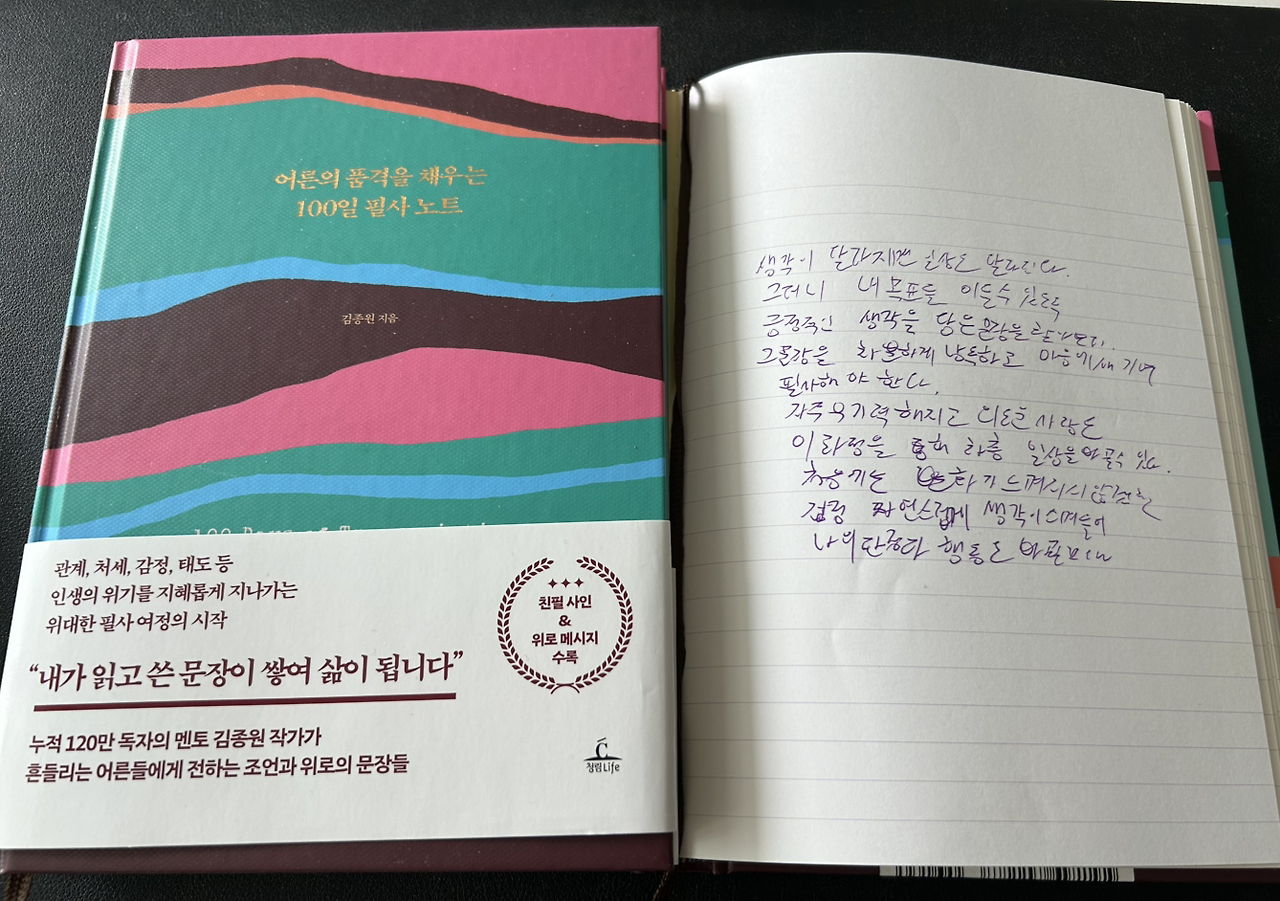 어른의 품격을 채우는
100일 필사 노트
김종원 지음
관계, 처세, 감정, 태도 등
인생의 위기를 지혜롭게 지나가는
위대한 필사 여정의 시작
친필 사인
&
위로 메시지
수록
“내가 읽고 쓴 문장이 쌓여 삶이 됩니다”
누적 120만 독자의 멘토 김종원 작가가
흔들리는 어른들에게 전하는 조언과 위로의 문장들
청림Life
생각이 달라지면 일상도 달라진다.
그러니 내 목표를 이룰수 있도록
긍정적인 생각을 담은 문장을
그 문장을 차분하게 낭독하고 마음에 새기며
필사해야 한다.
자주 무기력해지고 사람도
이 과정을 통해 일상을 바꿀수 있다.
처음에는 변화가 느껴지지
점점 자연스럽게 생각이 스며들어
나의 행동도